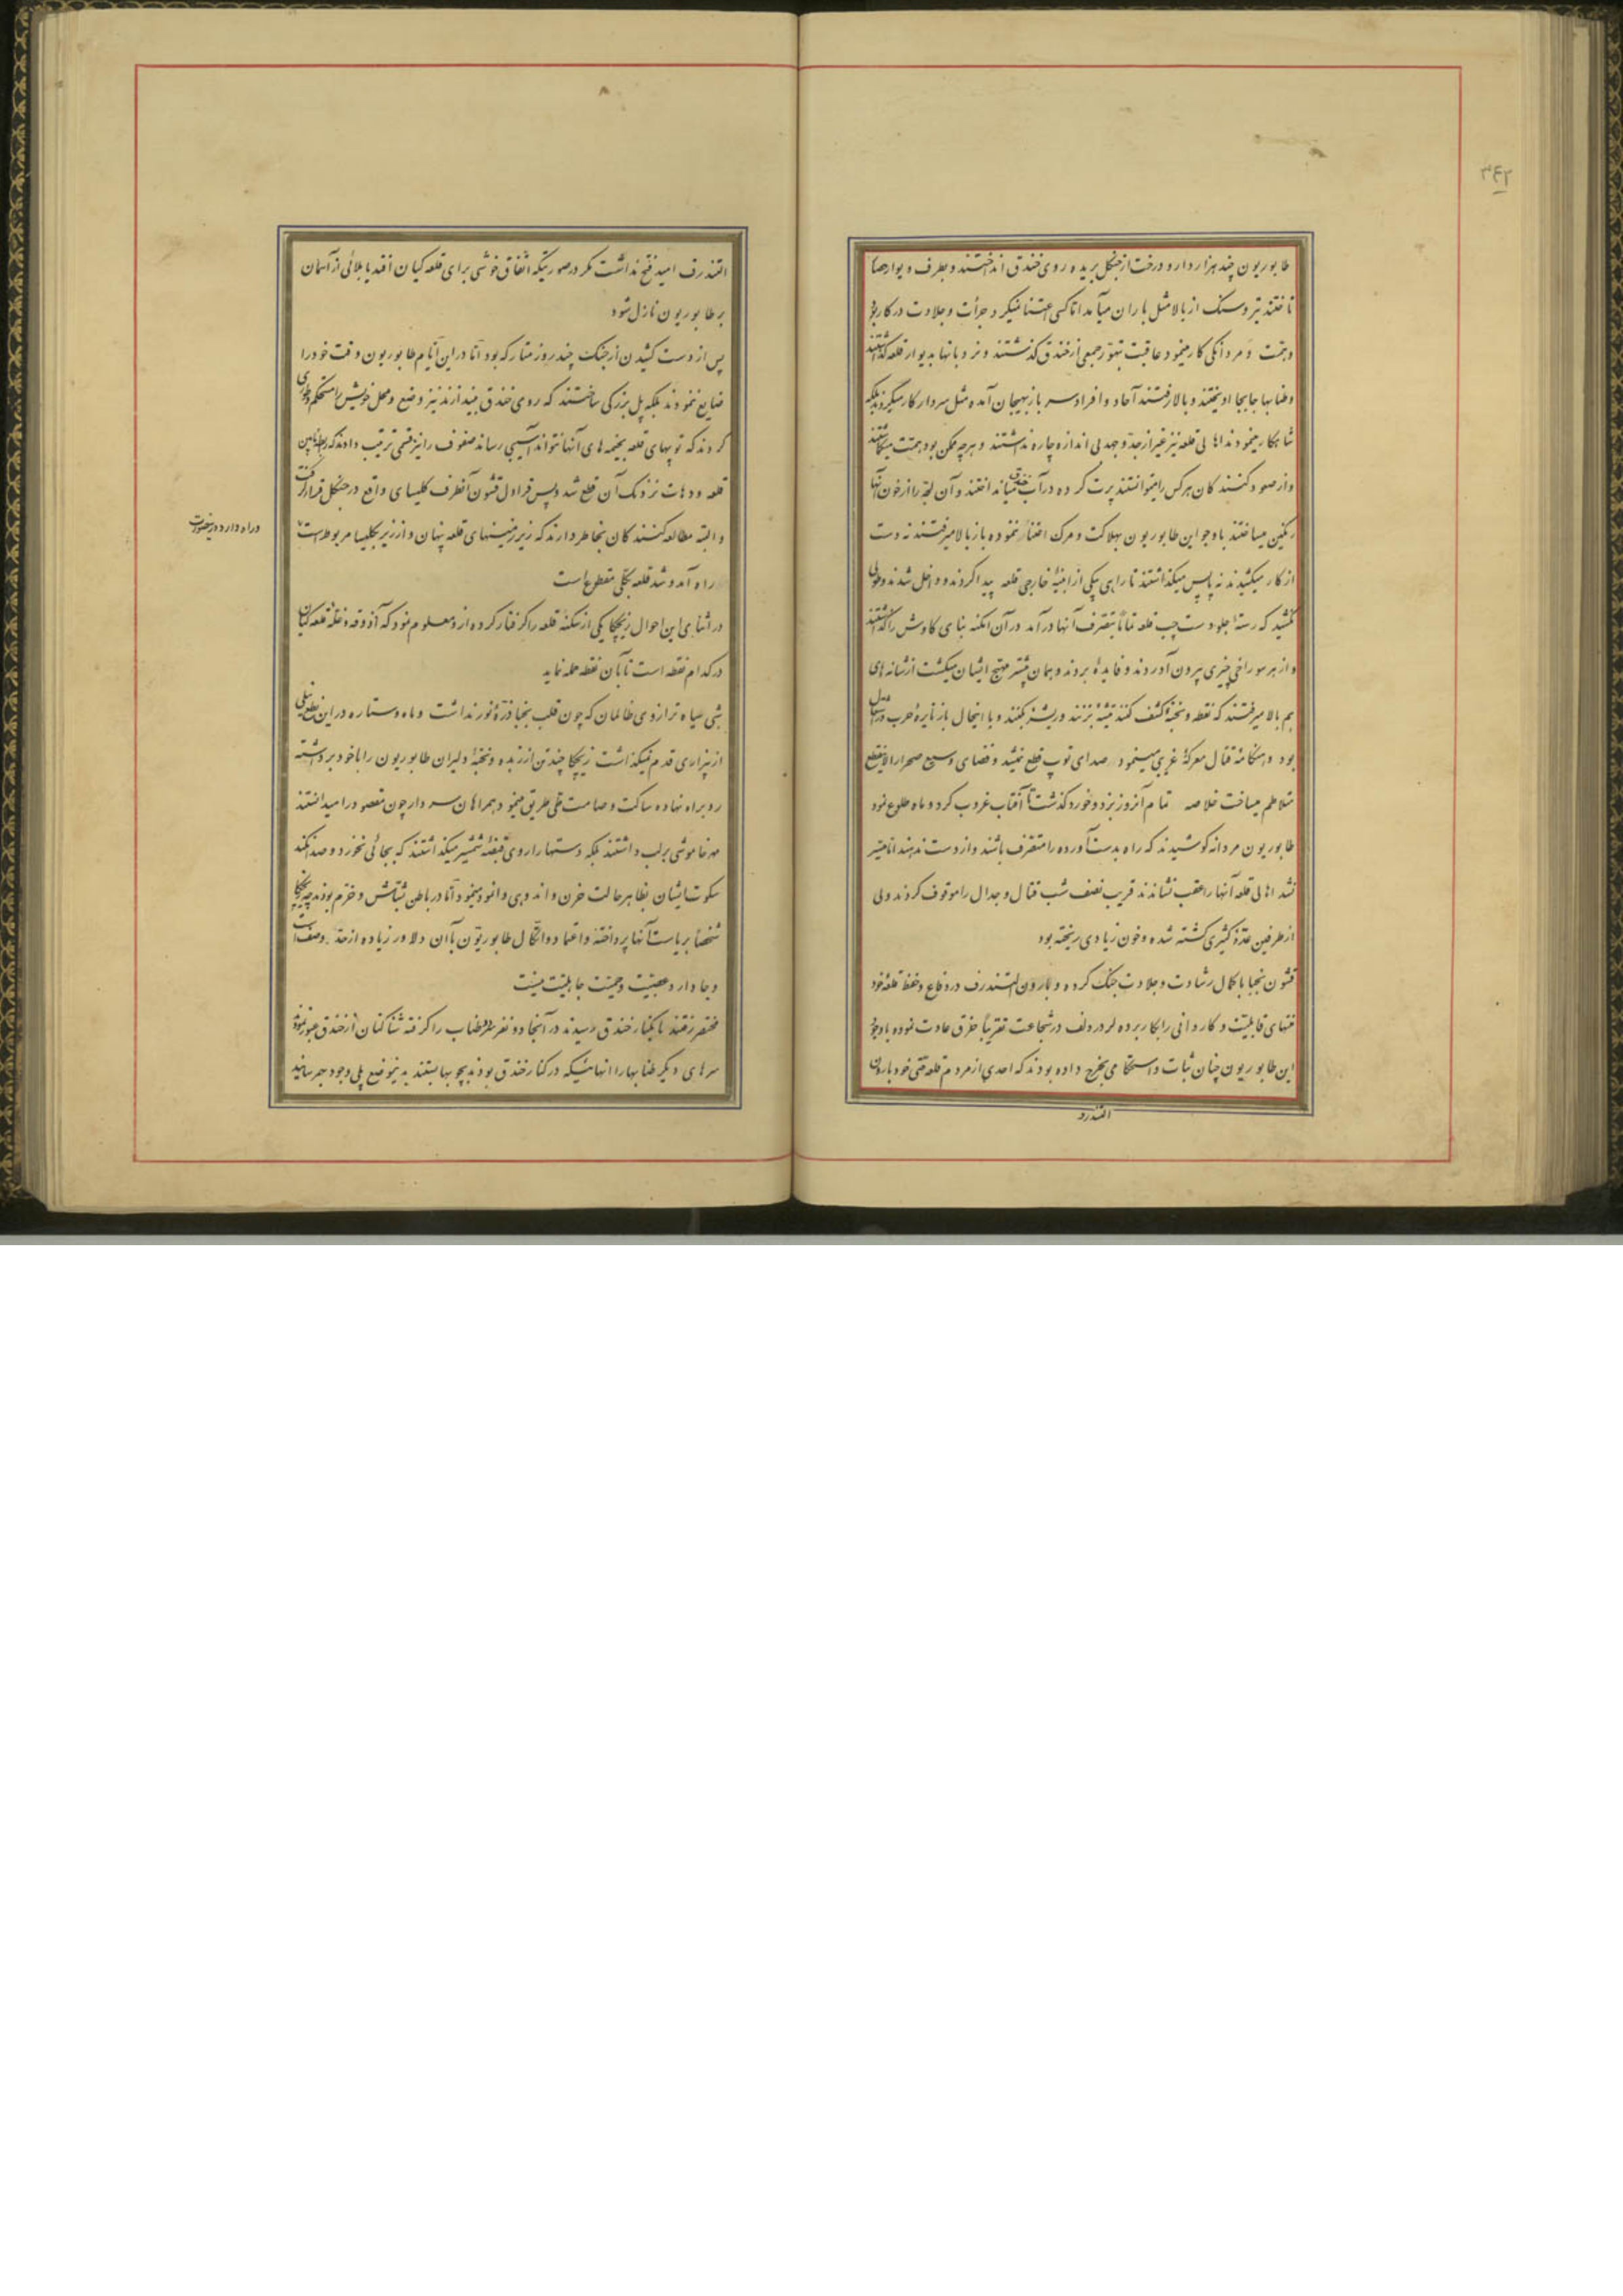 ۳۴۲
طابوریون چند هزار دار و درخت از جنگل بریده روی خندق انداختند و بطرف دیوار حصار
تاختند تیر و سنک از بالا مثل باران میآمد اما کسی اعتنا نمیکرد جرأت و جلادت در کار بود
و همت و مردانگی کار مینمود عاقبت بتهور جمعی از خندق گذشتند و نردبانها بدیوار قلعه گذاشتند
و طنابها جابجا آویختند و بالا رفتند آحاد و افراد سرباز بهیجان آمده مثل سردار کار میکردند بلکه
شاهکار مینمودند اهالی قلعه نیز غیر از جد و جهد بی اندازه چاره نداشتند و هر چه ممکن بود همت میگماشتند
و از صعود کنندکان هر کس را میتوانستند پرت کرده در آب خندق میانداختند و آن لجه را از خون آنها
رنکین میساختند با وجود این طابوریون بهلاکت و مرک اعتنا ننموده باز بالا میرفتند نه دست
از کار میکشیدند نه پا پس میگذاشتند تا راهی بیکی از ابنیه خارجی قلعه پیدا کردند و داخل شدند و طولی
نکشید که رسته جلو دست چپ قلعه تماماً بتصرف آنها درآمد در آن امکنه بنای کاوش را گذاشتند
و از هر سوراخی چیزی بیرون آوردند و فایده بردند و همان بیشتر مهیج ایشان میکشت از شانه های
هم بالا میرفتند که نقطه و نخبهٔ کشف کنند تیشه بزنند و ریشه بکنند و با اینحال باز نایرهٔ حرب در اشتعال
بود و هنگامهٔ قتال معرکهٔ غریبی مینمود صدای توپ قطع نمیشد و فضای وسیع صحرا را لاینقطع
متلاطم میساخت خلاصه تمام آنروز بزد و خورد گذشت تا آفتاب غروب کرد و ماه طلوع نمود
طابوریون مردانه کوشیدند که راه بدست آورده را متصرف باشند و از دست ندهند اما میسر
نشد اهالی قلعه آنها را عقب نشاندند قریب نصف شب قتال و جدال را موقوف کردند ولی
از طرفین عدهٔ کثیری کشته شده و خون زیادی ریخته بود
قشون نجبا با کمال رشادت و جلادت جنک کرده و بارون التندرف در دفاع و حفظ قلعه خود
منتهای قابلیت و کاردانی را بکار برده لردردلف در شجاعت تقریباً خرق عادت نموده با وجود
این طابوریون چنان ثبات و استحکامی بخرج داده بودند که احدی از مردم قلعه حتی خود بارون
التندرف
التندرف امید فتح نداشت مگر در صورتیکه اتفاق خوشی برای قلعه کیان افتد یا بلائی از آسمان
بر طابوریون نازل شود
پس از دست کشیدن از جنک چند روز متارکه بود اما در این ایام طابوریون وقت خود را
ضایع ننمودند بلکه پل بزرکی ساختند که روی خندق بیندازند نیز وضع و محل خویش را مستحکم و طوری
کردند که توپهای قلعه بخیمه های آنها نتواند آسیبی رساند صفوف را نیز قسمی ترتیب دادند که رابطه مابین
قلعه و دهات نزدیک آن قطع شد و پس قراول قشون آنطرف کلیسای واقع در جنگل قرار گرفت
و البته مطالعه کنندکان بخاطر دارند که زیر زمینهای قلعه پنهان و از زیر بکلیسا مربوط است
و راه دارد در اینصورت
راه آمد و شد قلعه بکلی مقطوع است
در اثنای این احوال زیچکا یکی از سکنهٔ قلعه را گرفتار کرده از او معلوم نمود که آذوقه و غلهٔ قلعه کیان
در کدام نقطه است تا بآن نقطه حمله نماید
شبی سیاه تر از روی ظالمان که چون قلب نجبا ذرهٔ نور نداشت و ماه و ستاره در این نطع نیلی
از بیزاری قدم نمیگذاشت زیچکا چند تن از زبده و نخبهٔ دلیران طابوریون را با خود برداشته
رو براه نهاده ساکت و صامت طی طریق مینمود همراهان سردار چون مقصود را میدانستند
مهر خاموشی بر لب داشتند بلکه دستها را روی قبضه شمشیر میگذاشتند که بجائی نخورد و صدا نکند
سکوت ایشان بظاهر حالت حزن و اندوهی وانمود مینمود اما در باطن بشاش و خرم بودند چه زیچکا
شخصاً بریاست آنها پرداخته و اعتماد و اتکال طابوریون بآن دلاور زیاده از حد وصف است
و جا دارد عصبیت و حمیت جاهلیت نیست
مختصر رفتند تا بکنار خندق رسیدند در آنجا دو نفر سر طناب را گرفته شناکنان از خندق عبور نمودند
سرهای دیگر طنابها را آنهائیکه در کنار خندق بودند بچوبها بستند بدینوضع پلی وجود بهم رسانید